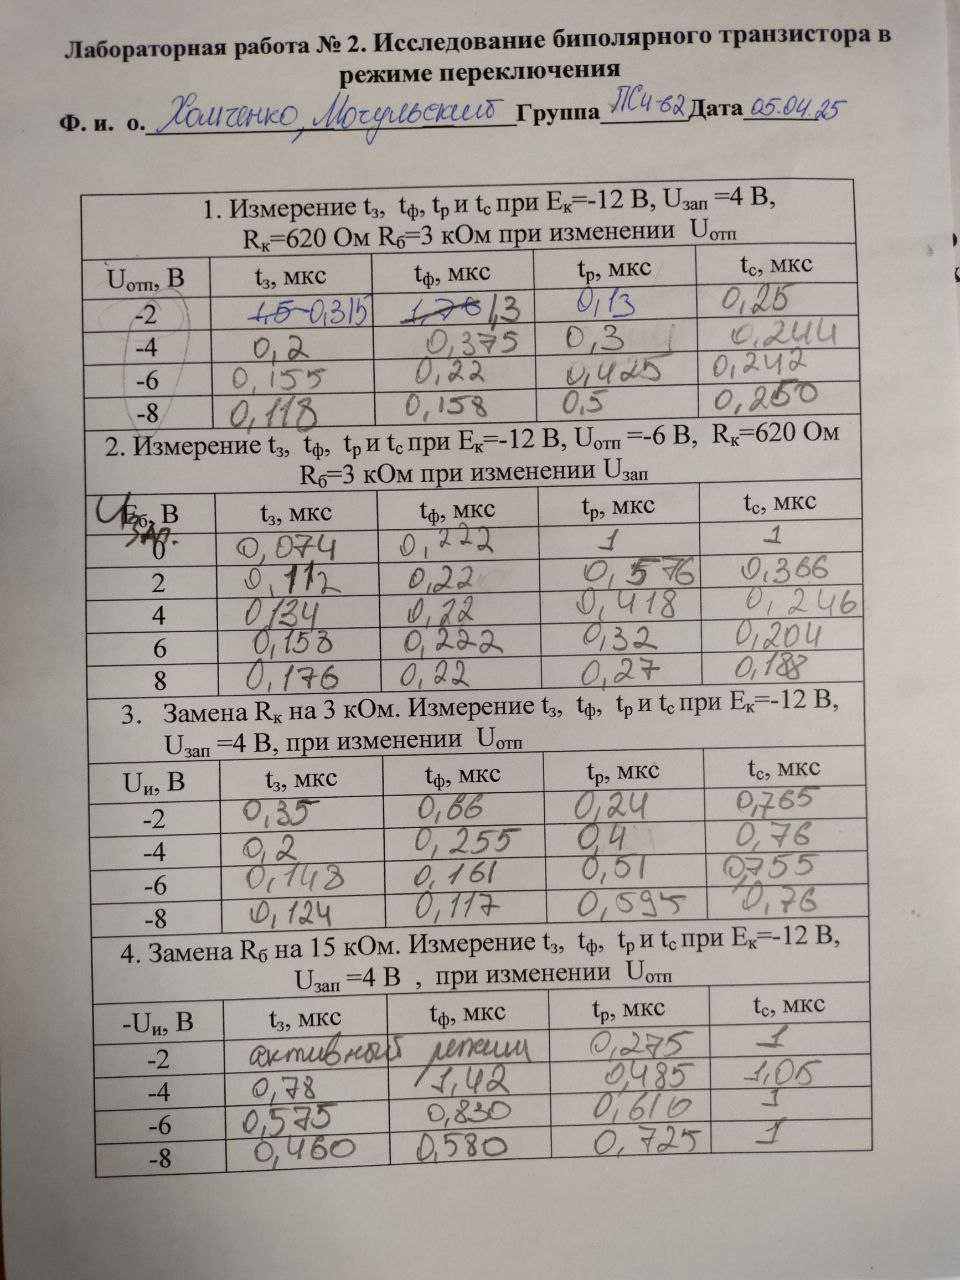 Лабораторная работа № 2. Исследование биполярного транзистора в
режиме переключения
Ф. и. о. Хомченко, Мочульский Группа ПСЧ-62 Дата 05.04.25
1. Измерение tз, tф, tр и tс при Eк=-12 В, Uзап =4 В,
Rк=620 Ом Rб=3 кОм при изменении Uотп
Uотп, В tз, мкс tф, мкс tр, мкс tс, мкс
-2 1,5 0,315 1,76 1,3 0,13 0,25
-4 0,2 0,375 0,3 0,244
-6 0,155 0,22 0,425 0,242
-8 0,118 0,158 0,5 0,250
2. Измерение tз, tф, tр и tс при Eк=-12 В, Uотп =-6 В, Rк=620 Ом
Rб=3 кОм при изменении Uзап
Uзап. Eб, В tз, мкс tф, мкс tр, мкс tс, мкс
0 0,074 0,222 1 1
2 0,112 0,22 0,576 0,366
4 0,134 0,22 0,418 0,246
6 0,153 0,222 0,32 0,204
8 0,176 0,22 0,27 0,188
3. Замена Rк на 3 кОм. Измерение tз, tф, tр и tс при Eк=-12 В,
Uзап =4 В, при изменении Uотп
Uи, В tз, мкс tф, мкс tр, мкс tс, мкс
-2 0,35 0,66 0,24 0,765
-4 0,2 0,255 0,4 0,76
-6 0,148 0,161 0,51 0,755
-8 0,124 0,117 0,595 0,76
4. Замена Rб на 15 кОм. Измерение tз, tф, tр и tс при Eк=-12 В,
Uзап =4 В , при изменении Uотп
-Uи, В tз, мкс tф, мкс tр, мкс tс, мкс
-2 активный режим 0,275 1
-4 0,78 1,42 0,485 1,05
-6 0,575 0,830 0,610 1
-8 0,460 0,580 0,725 1